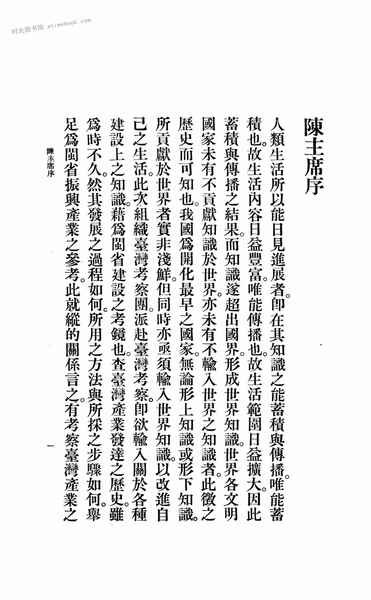 时光图书馆
陳主席序
人類生活所以能日見進展者。卽在其知識之能蓄積與傳播。唯能蓄
積也。故生活內容日益豐富。唯能傳播也。故生活範圍日益擴大。因此
蓄積與傳播之結果。而知識遂超出國界。形成世界知識。世界各文明
國家未有不貢獻知識於世界。亦未有不輸入世界之知識者。此徵之
歷史而可知也。我國爲開化最早之國家。無論形上知識或形下知識。
所貢獻於世界者實非淺鮮。但同時亦亟須輸入世界知識。以改進自
己之生活。此次組織臺灣考察團。派赴臺灣考察。卽欲輸入關於各種
建設上之知識。藉爲閩省建設之考鏡也。查臺灣產業發達之歷史。雖
爲時不久。然其發展之過程如何。所用之方法與所採之步驟如何。舉
足爲閩省振興產業之參考。此就縱的關係言之。有考察臺灣產業之
陳主席序
一